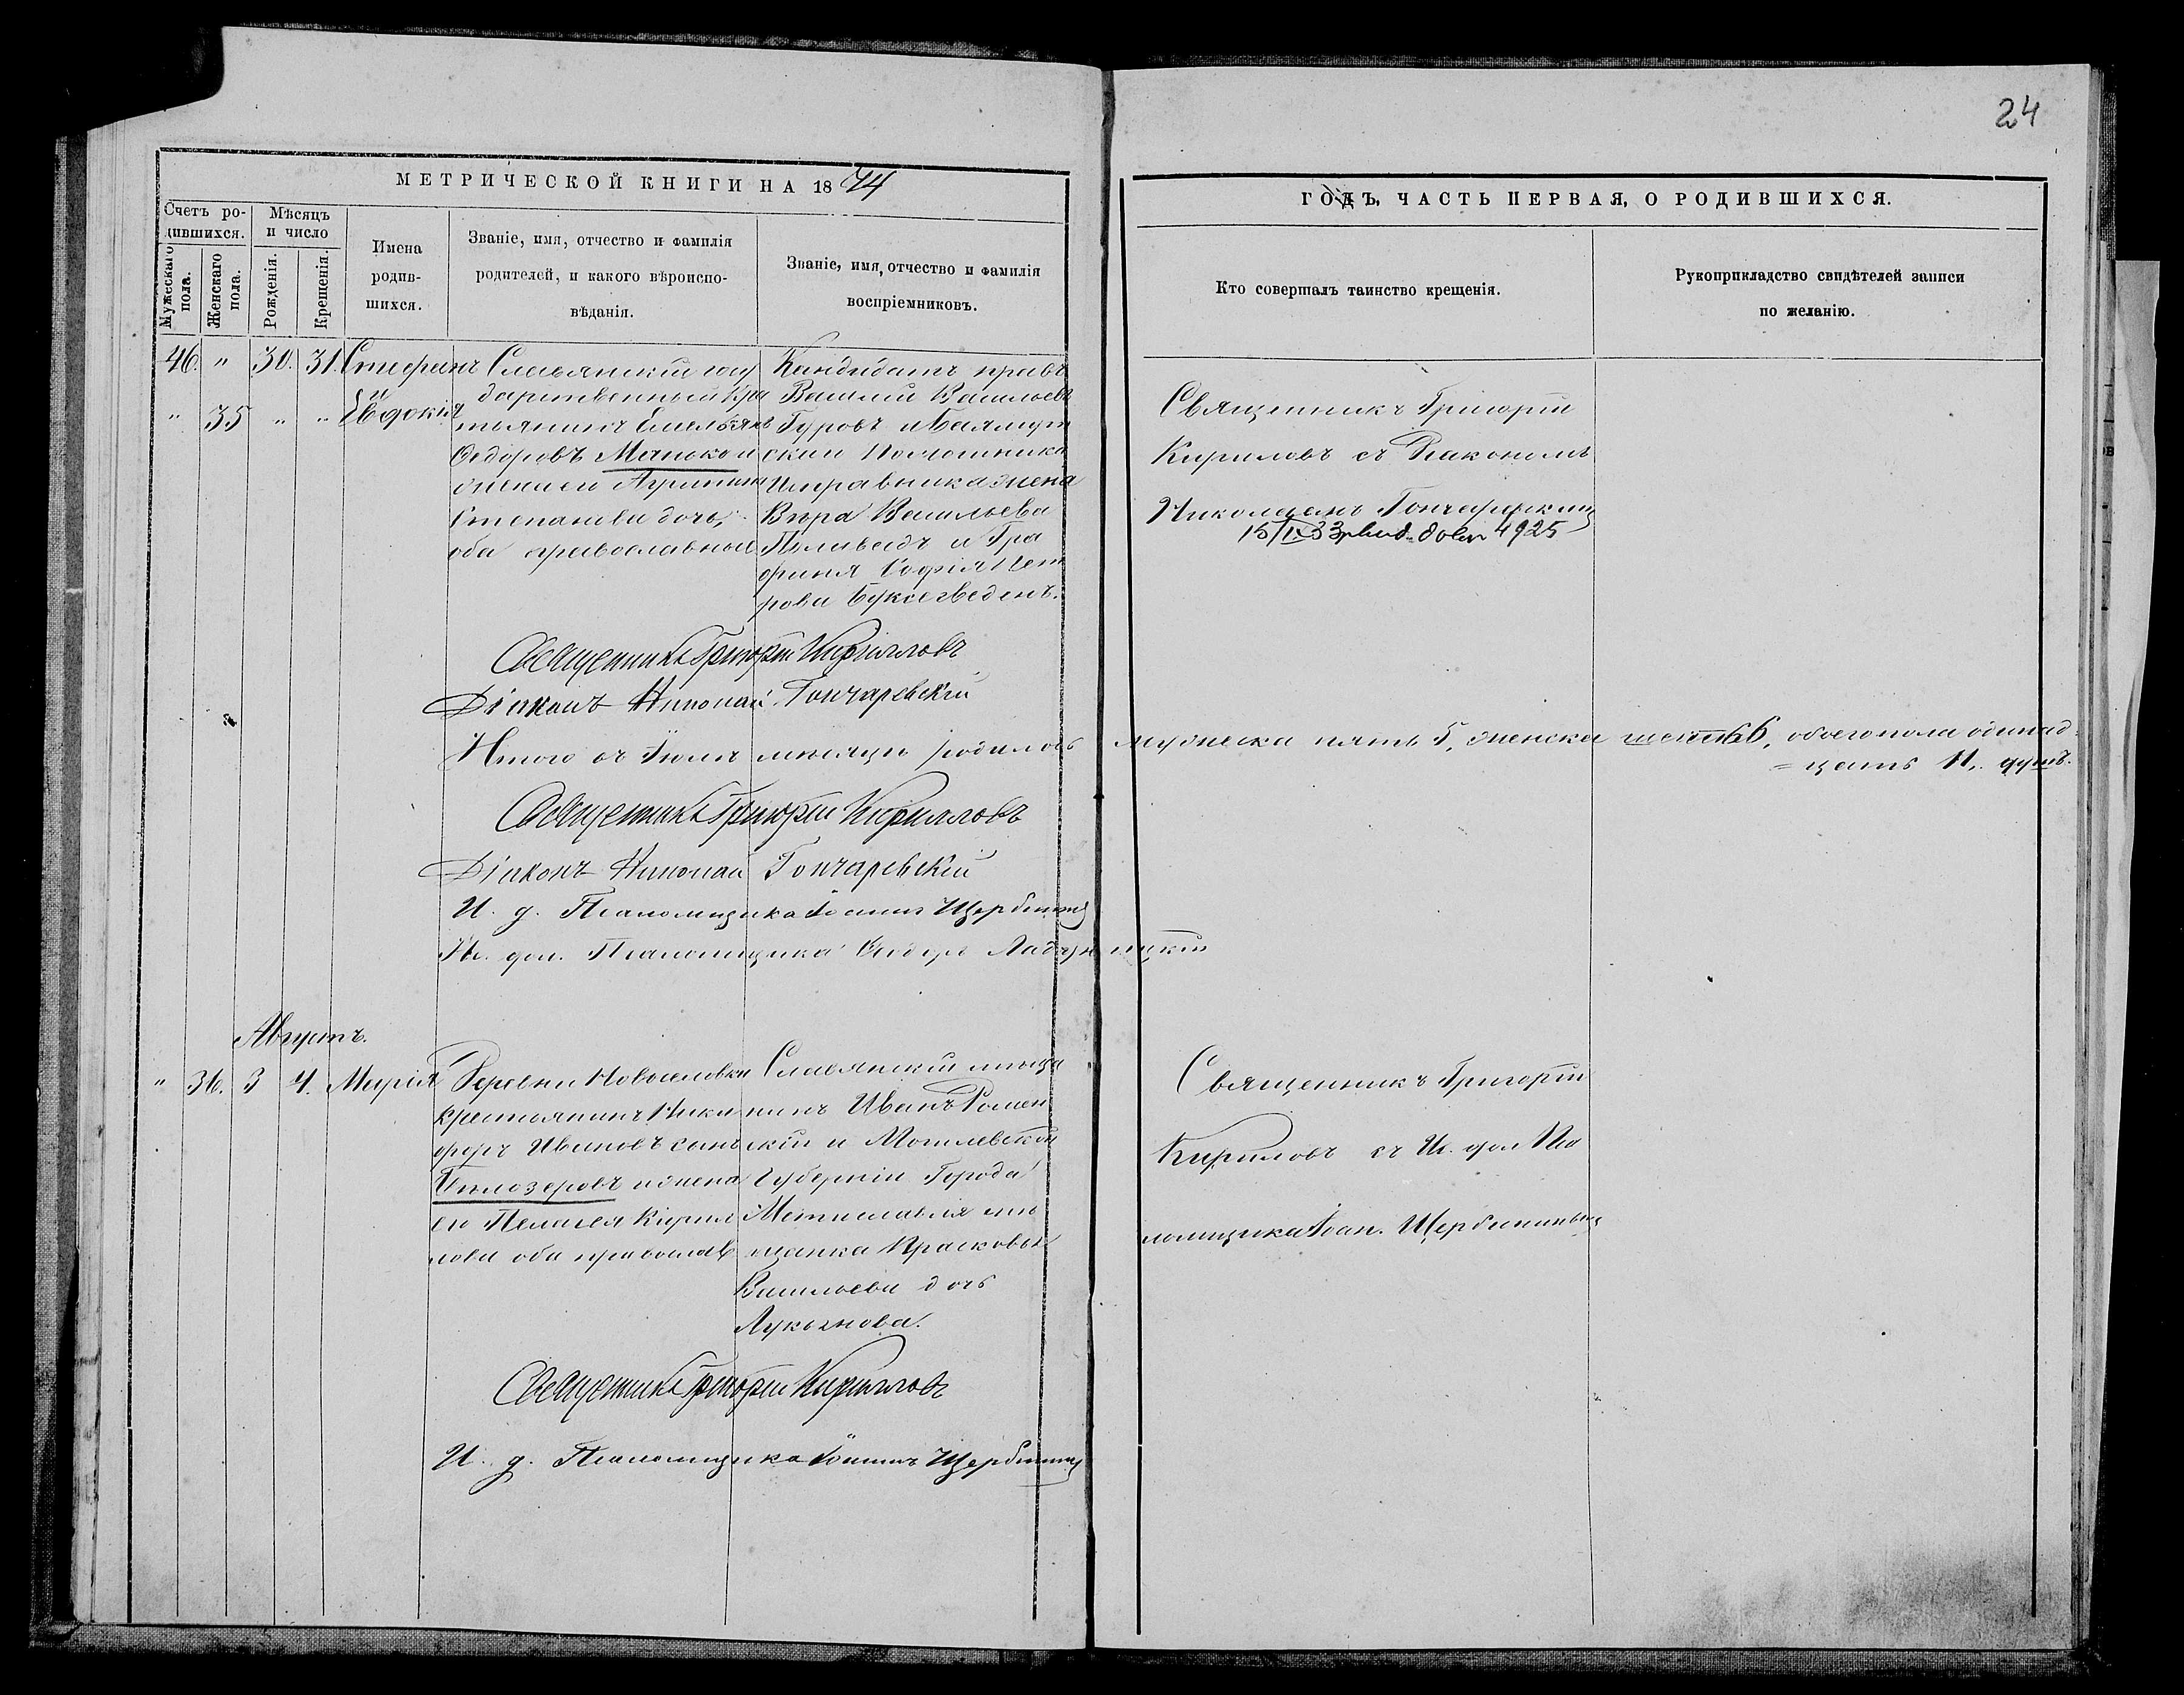 24
МЕТРИЧЕСКОЙ КНИГИ НА 1874
ГОДЪ, ЧАСТЬ ПЕРВАЯ, О РОДИВШИХСЯ.
Счетъ ро-
дившихся.
Мужескаго
пола.
Женскаго
пола.
Мѣсяцъ
и число
Рожденія.
Крещенія.
Имена
родив-
шихся.
Званіе, имя, отчество и фамилія
родителей, и какого вѣроиспо-
вѣданія.
Званіе, имя, отчество и фамилія
воспріемниковъ.
Кто совершалъ таинство крещенія.
Рукоприкладство свидѣтелей записи
по желанію.
46. " 30. 31. Стефанъ
и
" 35 " " Евдокія
Славянскій госу
дарственный кре
тьянинъ Емельянъ
Федоровъ Манько и
жена его Агрипина
Степанова дочь,
оба православные
Кандидатъ правъ
Василій Васильевъ
Гуровъ и Бахмут
скаго Помошника
Исправника жена
Вѣра Васильева
и Гра
финя Софія Пет
рова Буксгевденъ.
Священникъ Григорій
Кириловъ съ Диакономъ
Николаемъ Гончаревскимъ
15/IX 33 4925
Священникъ Григорій Кирилловъ
Діаконъ Николай Гончаревскій
Итого въ Іюлѣ мѣсяцѣ родилось мужеска пять 5, женска шесть 6, обоего пола одинад
=цать 11, душъ.
Священникъ Григорій Кирилловъ
Діаконъ Николай Гончаревскій
И. д. Псаломщика Іоаннъ Щербининъ
Ис. дол. Псаломщика Ѳедоръ
Августъ.
" 36. 3 4. Марія
Деревни Новоселовки
крестьянинъ Ники
форъ Ивановъ сынъ
Бѣлозеровъ и жена
его Пелагея Кирил
лова оба православ
Славянскій мѣща
нинъ Иванъ Ромен
скій и Могилевской
Губерніи Города
Мстиславля мѣ
щанка Прасковья
Васильева дочь
Лукьянова.
Священникъ Григорій
Кириловъ съ Ис. дол Пса
ломщика Іоан. Щербининымъ
Священникъ Григорій Кирилловъ
И. д. Псаломщика Іоаннъ Щербининъ